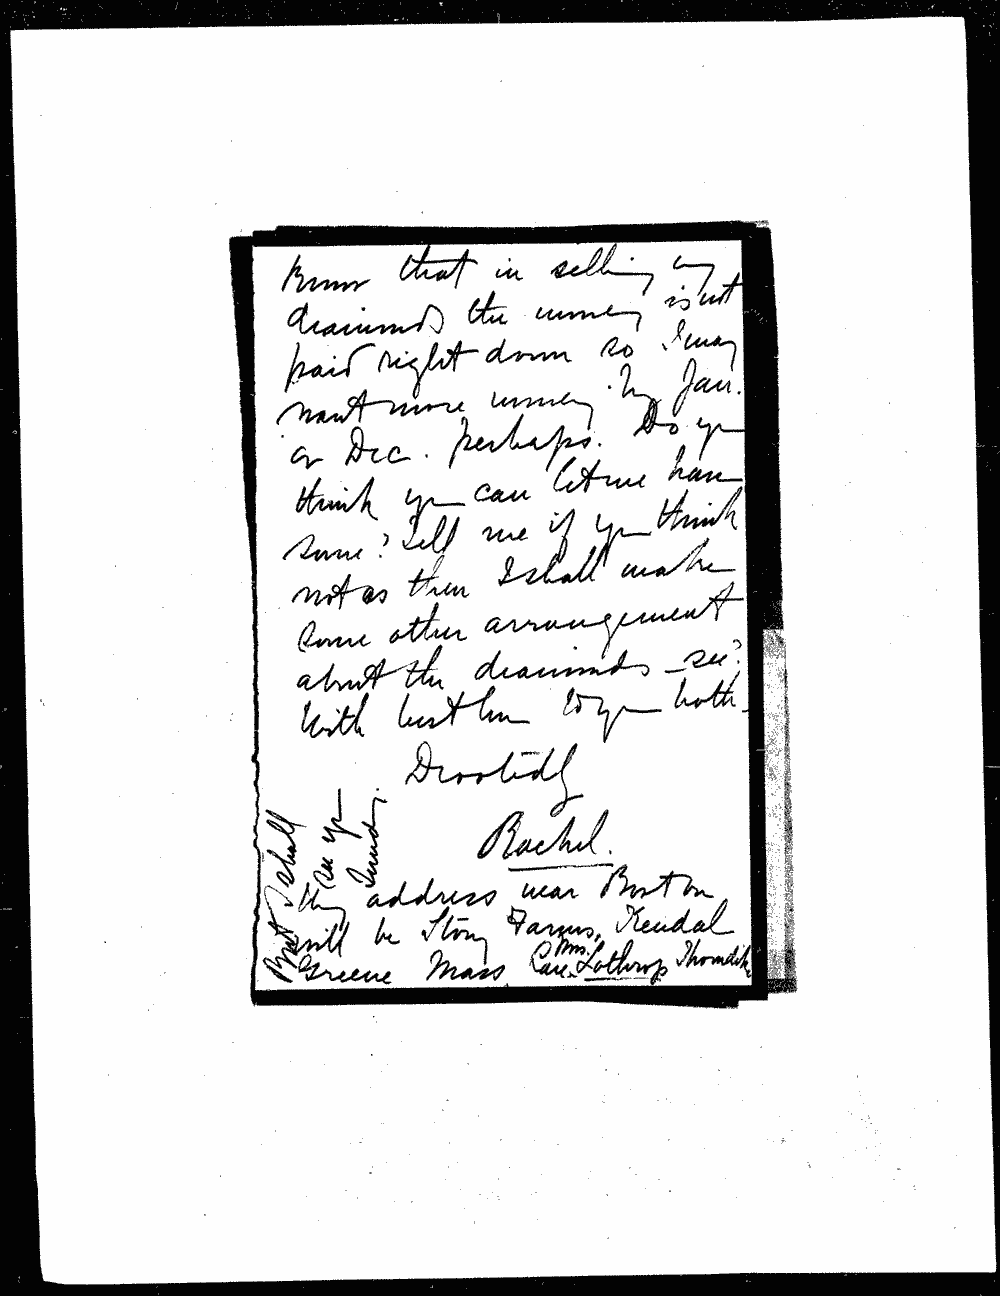 Know that in selling my
diamonds the money is not
paid right down so I may
want more money by Jan.
or Dec. perhaps. Do you
think you can let me have
some? Tell me if you think
not as then I shall make
some other arrangement
about the diamonds – see?
With best love to you both –
Devotedly
Rachel.
My address near Boston
will be Stony Farms, Kendal
Greene Mass Care Mrs. Lothrop Thorndike
But I shall
see you
Sunday.